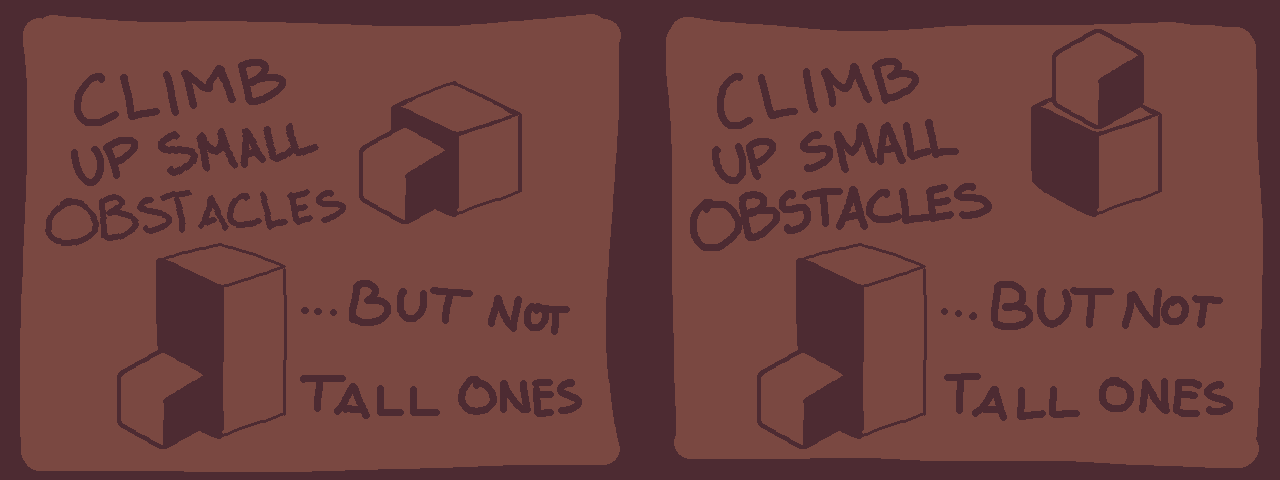 CLIMB
UP SMALL
OBSTACLES
...BUT NOT
TALL ONES
CLIMB
UP SMALL
OBSTACLES
...BUT NOT
TALL ONES